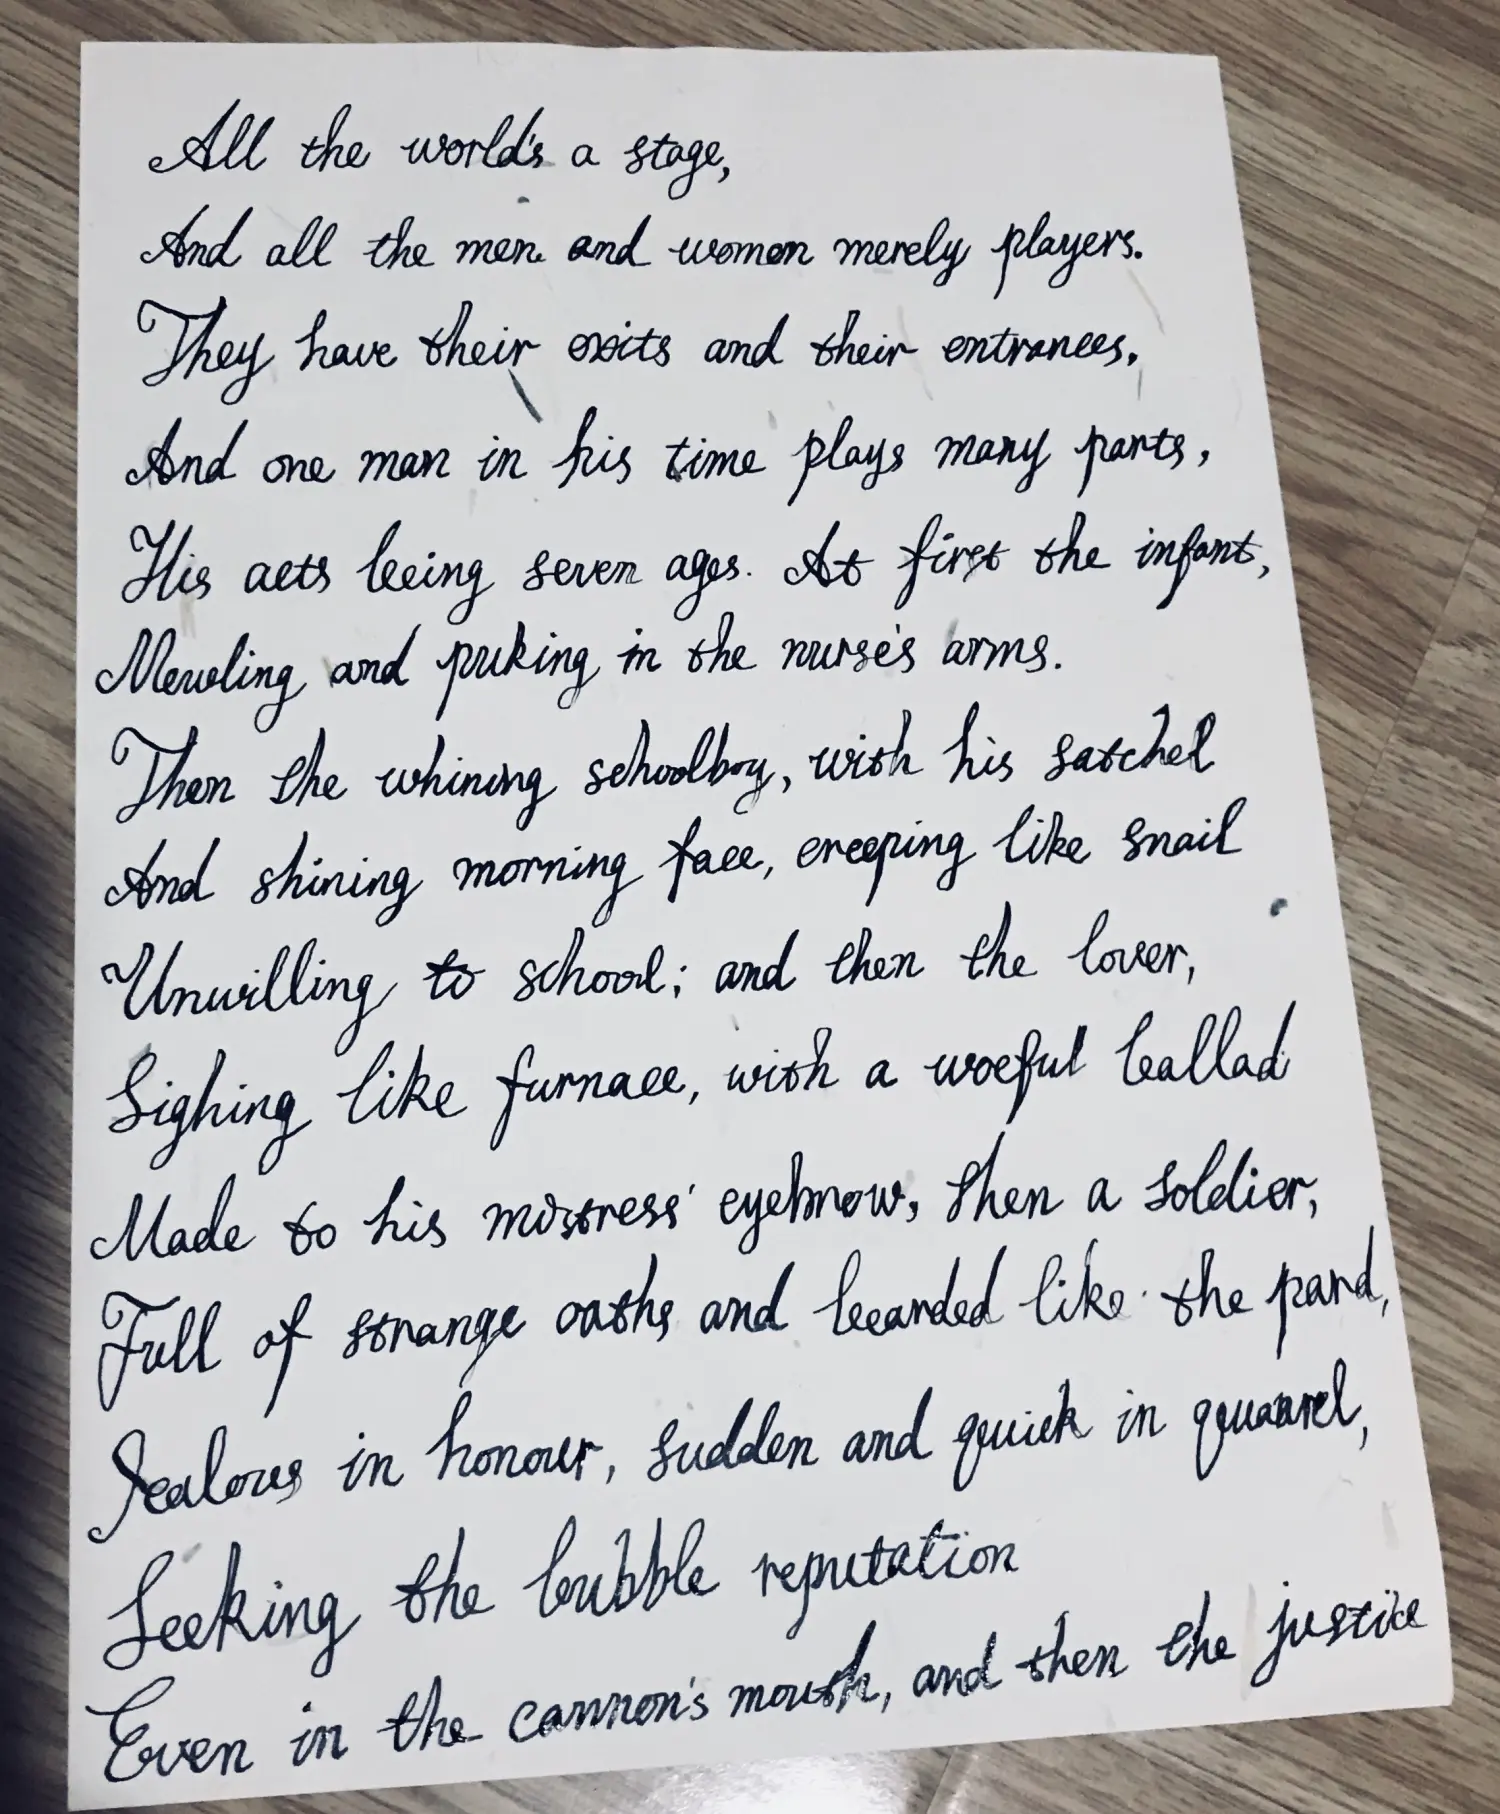 All the world's a stage,
And all the men and women merely players.
They have their exits and their entrances,
And one man in his time plays many parts,
His acts being seven ages. At first the infant,
Mewling and puking in the nurse's arms.
Then the whining schoolboy, with his satchel
And shining morning face, creeping like snail
Unwilling to school; and then the lover,
Sighing like furnace, with a woeful ballad
Made to his mistress' eyebrow, then a soldier,
Full of strange oaths and bearded like the pard,
Jealous in honour, sudden and quick in quarrel,
Seeking the bubble reputation
Even in the cannon's mouth, and then the justice